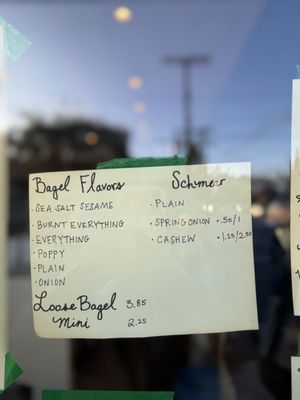 Bagel Flavors
· SEA SALT SESAME
· BURNT EVERYTHING
· EVERYTHING
· POPPY
· PLAIN
· ONION
Loose Bagel 3.85
Mini 2.25
Schmear
· PLAIN
· SPRING ONION +.50/1
· CASHEW +1.25/2.50